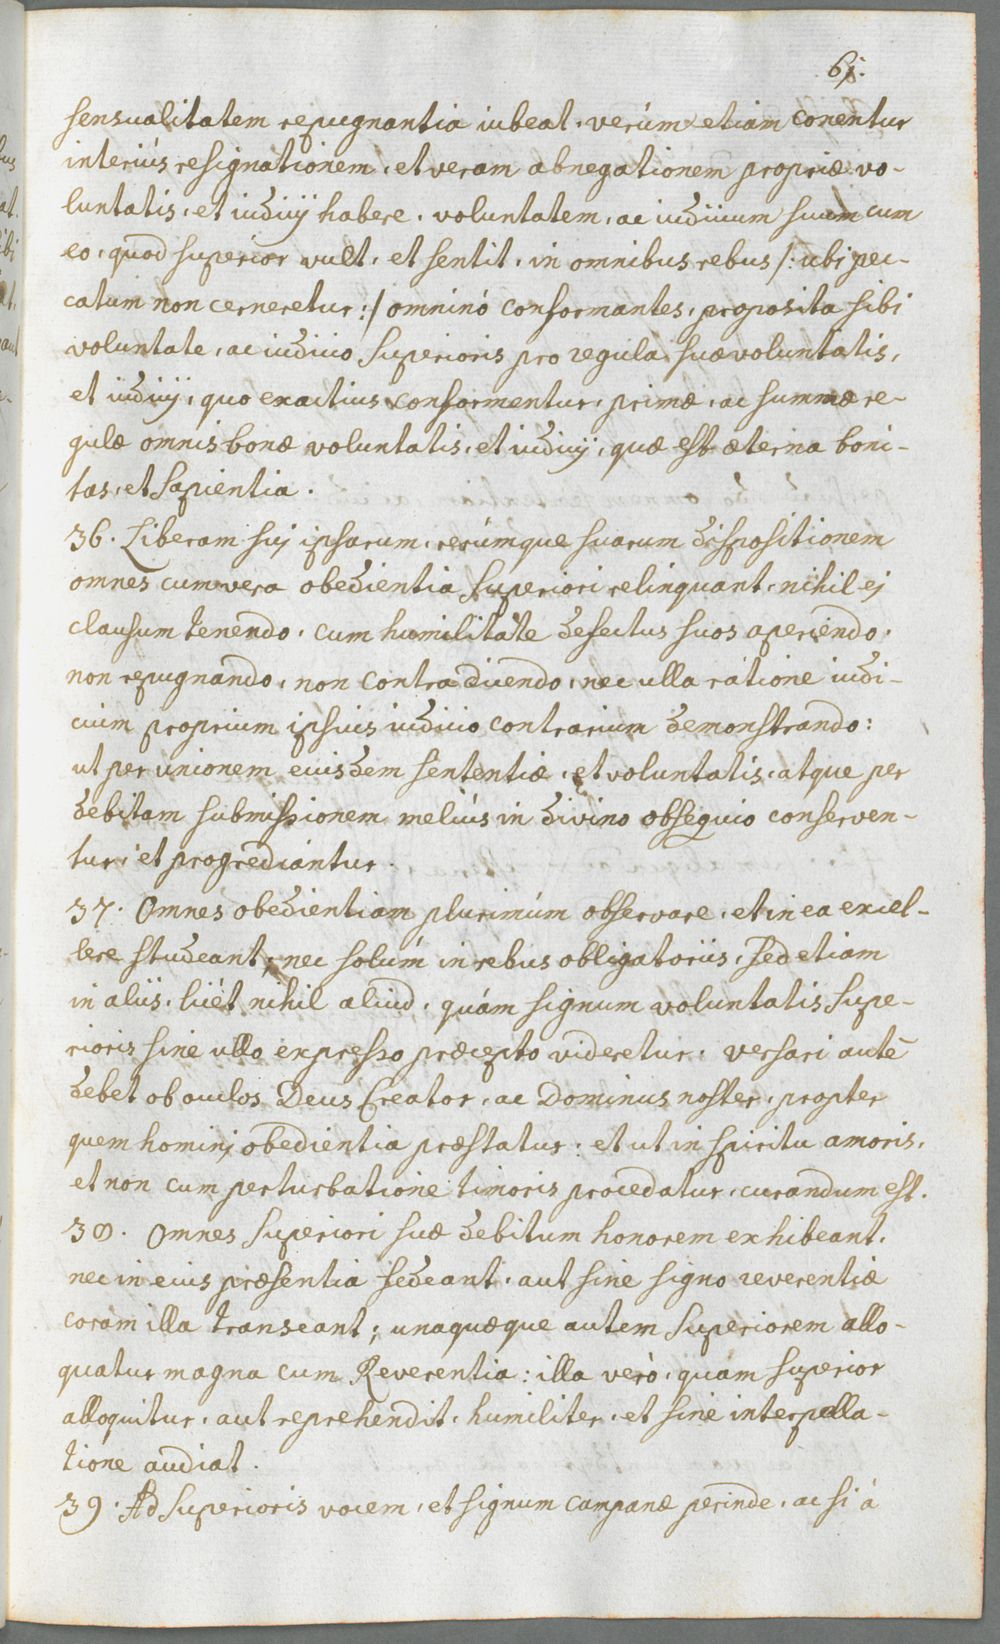 61.
sensualitatem repugnantia iubeat, verùm etiam conentur
interiùs resignationem, et veram abnegationem propriæ vo-
luntatis, et iudicij habere, voluntatem, ac iudicium suum cum
eo, quod superior vult, et sentit, in omnibus rebus /: ubi pec-
catum non cerneretur :/ omninò conformantes, proposita sibi
voluntate, ac iudicio Superioris pro regula suæ voluntatis,
et iudicij, quo exactius conformentur, primæ, ac summæ re-
gulæ omnis bonæ voluntatis, et iudicij, quæ est æterna boni-
tas, et Sapientia.
36. Liberam suj ipsarum, rerúmque suarum dispositionem
omnes cum vera obedientia Superiori relinquant, nihil ej
clausum tenendo, cum humilitate defectus suos aperiendo,
non repugnando, non contradicendo, nec ulla ratione iudi-
cium proprium ipsius iudicio contrarium demonstrando:
ut per unionem eiusdem sententiæ, et voluntatis, atque per
debitam submissionem meliùs in divino obsequio conserven-
tur, et progrediantur.
37. Omnes obedientiam plurimúm observare, et in ea excel-
lere studeant, nec solúm in rebus obligatoriis, sed etiam
in aliis, licèt nihil aliud, quám signum voluntatis Supe-
rioris sine ullo expresso præcepto videretur. versari autē
debet ob oculos Deus Creator, ac Dominus noster, propter
quem hominj obedientia præstatur: et ut in spiritu amoris,
et non cum perturbatione timoris procedatur, curandum est.
38. Omnes Superiori suæ debitum honorem exhibeant,
nec in eius præsentia sedeant, aut sine signo reverentiæ
coràm illa transeant; unaquæque autem Superiorem allo-
quatur magna cum Reverentia: illa verò, quam superior
alloquitur, aut reprehendit, humiliter, et sine interpella-
tione audiat.
39. Ad Superioris vocem, et signum campanæ perinde, ac si á